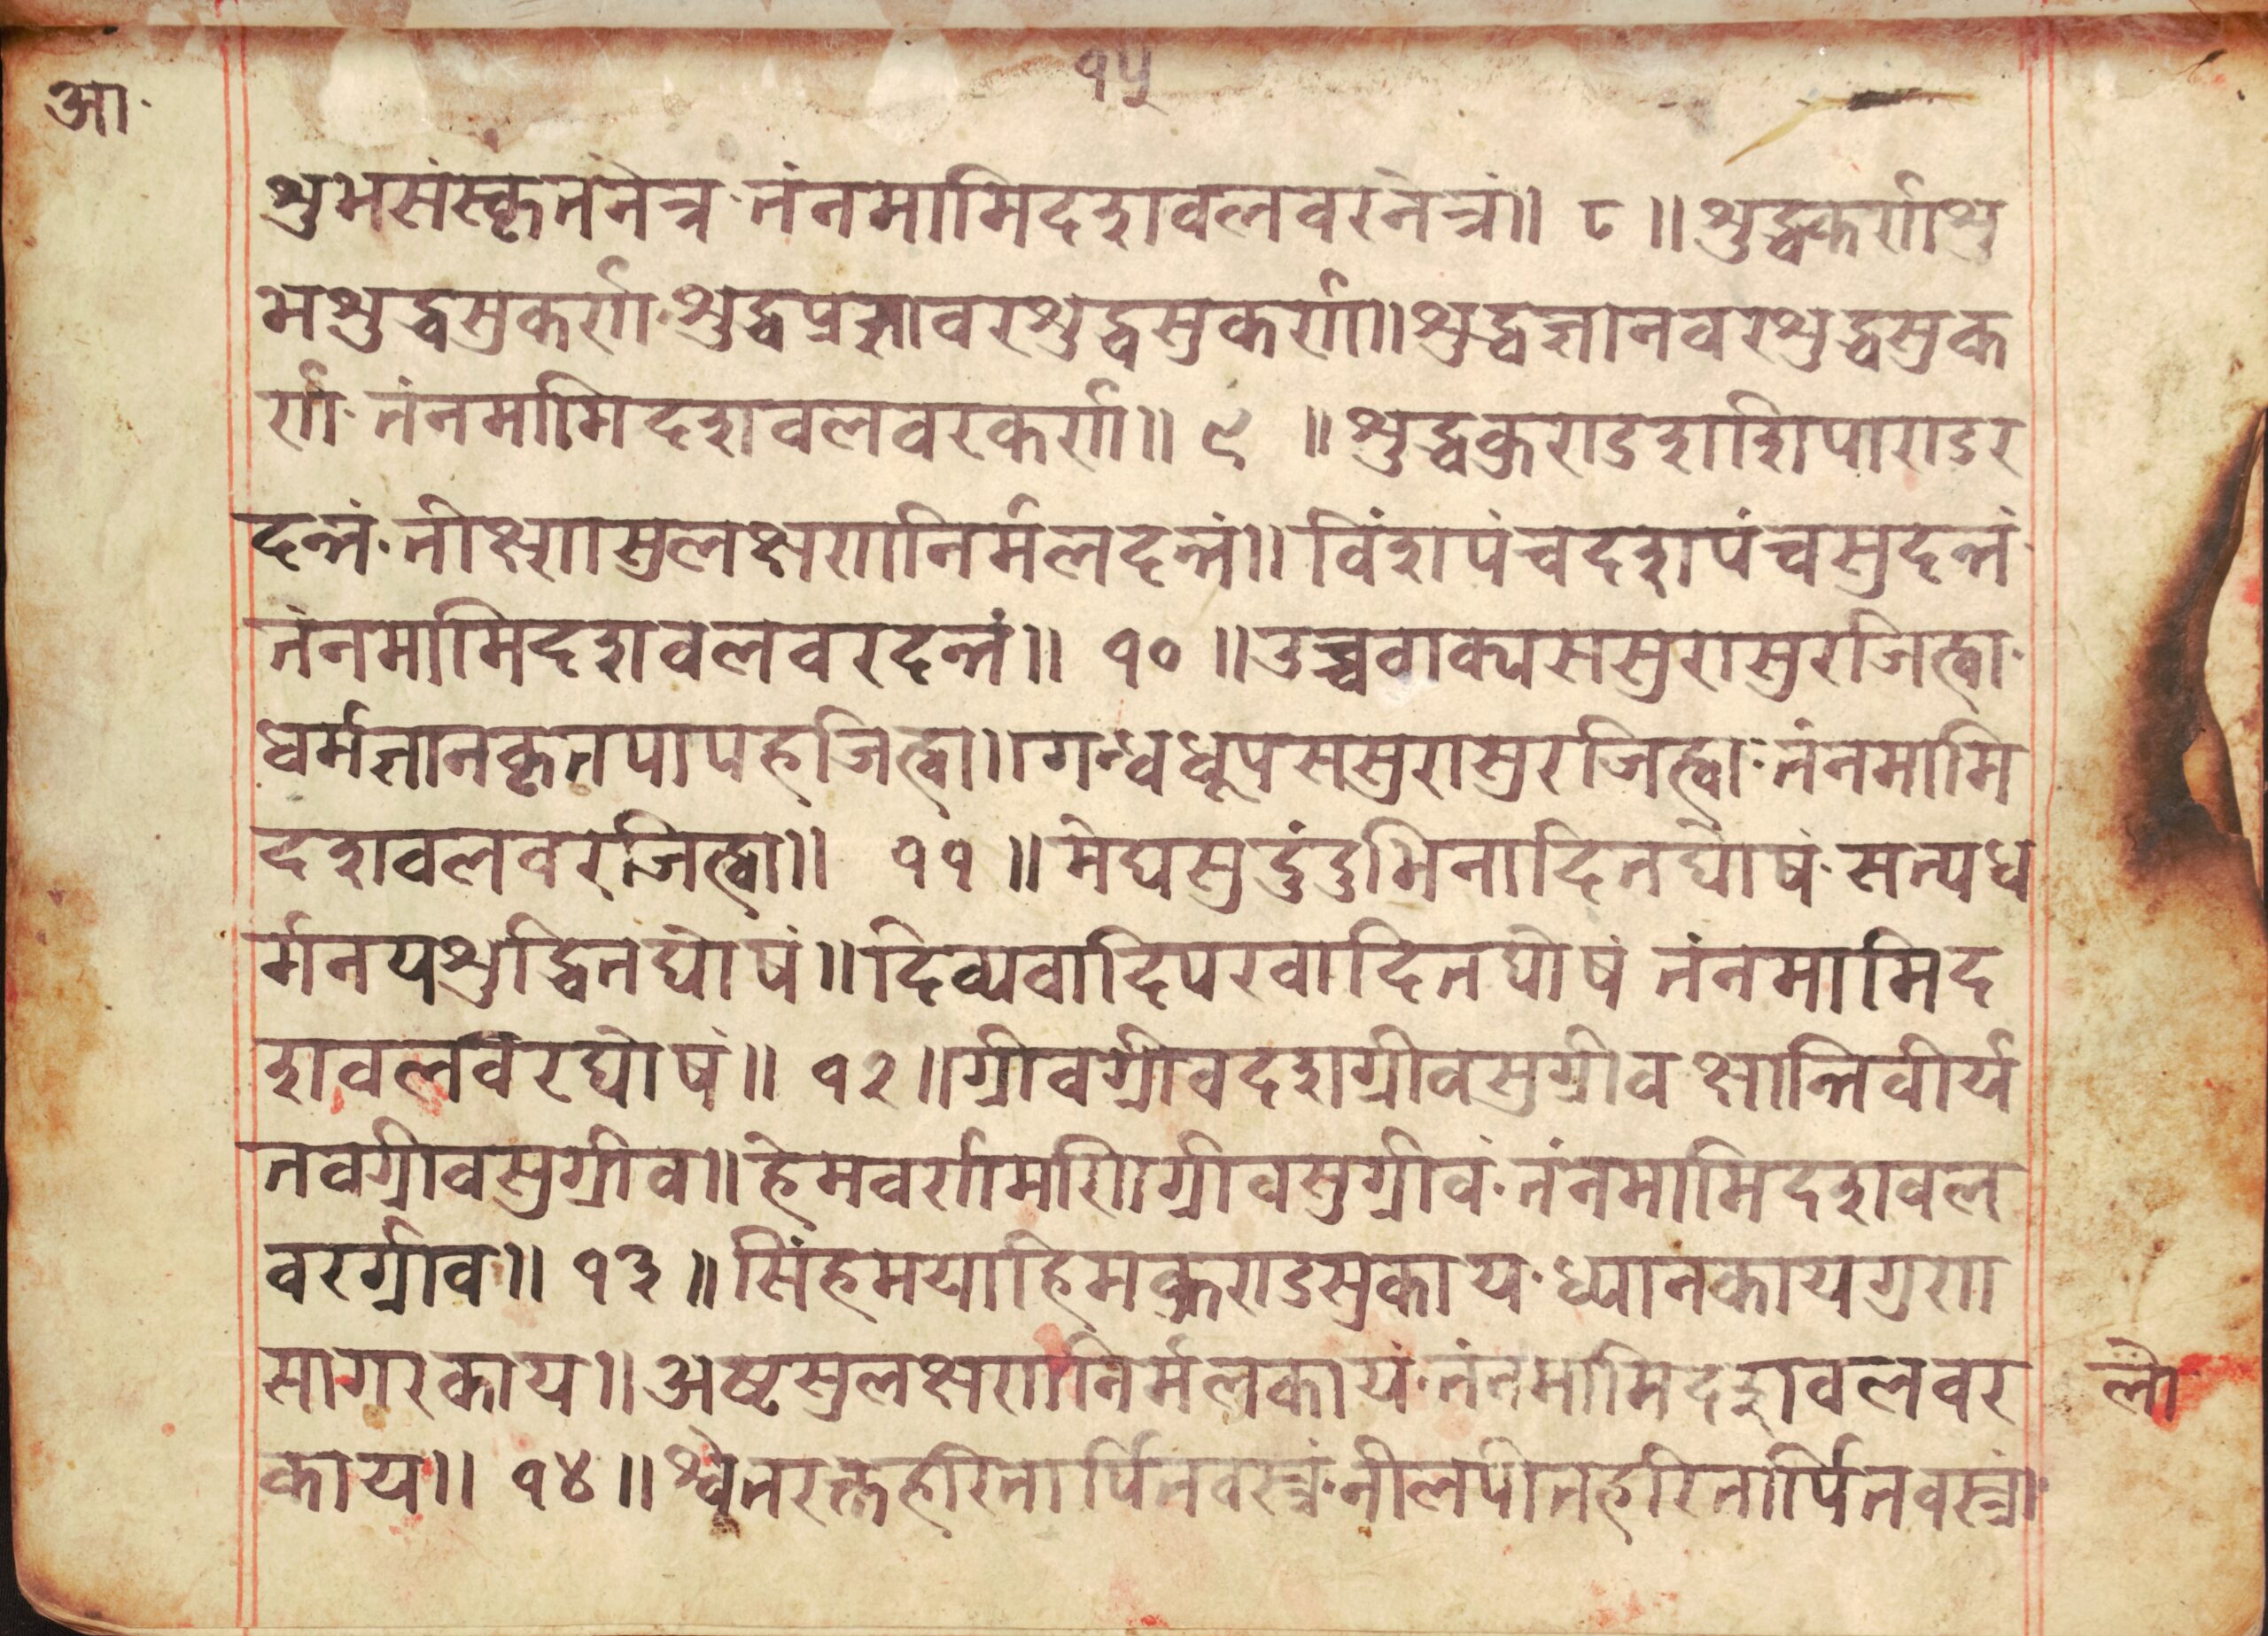 १५
आ·
शुभसंस्कृतनेत्र·तंनमामिदशवलवरनेत्रं॥ ८ ॥शुद्धकर्णशु
भशुद्धसुकर्ण·शुद्धप्रज्ञावरशुद्धसुकर्ण॥शुद्धज्ञानवरशुद्धसुक
र्ण·तंनमामिदशवलवरकर्ण॥ ९ ॥शुद्धकुराडशशिपाराडर
दन्तं·तीक्ष्णसुलक्षणनिर्मलदन्तं॥विंशपंचदशपंचसुदन्तं·
तंनमामिदशवलवरदन्तं॥ १० ॥उच्चवाक्यससुरासुरजित्वा·
धर्मज्ञानकृतपापहजित्वा॥गन्धधूपससुरासुरजित्वा·तंनमामि
दशवलवरजित्वा॥ ११ ॥मेघसुदुंदुभिनादितघोषं·सत्यध
र्मनयशुद्धितघोषं॥दिव्यवादिपरवादितघोषं तंनमामिद
शवलवरघोषं॥ १२ ॥ग्रीवग्रीवदशग्रीवसुग्रीव क्षान्तिवीर्य
तवग्रीवसुग्रीव॥हेमवर्णमणिग्रीवसुग्रीवं·तंनमामिदशवल
वरग्रीव॥ १३ ॥सिंहमयाहिमकुराडसुकाय·ध्यानकायगुण
सागरकाय॥अष्टसुलक्षणनिर्मलकायं·तंनमामिदशवलवर
लो
काय॥ १४ ॥श्वेतरक्तहरितार्पितवस्त्रं·नीलपीतहरितार्पितवस्त्रं।